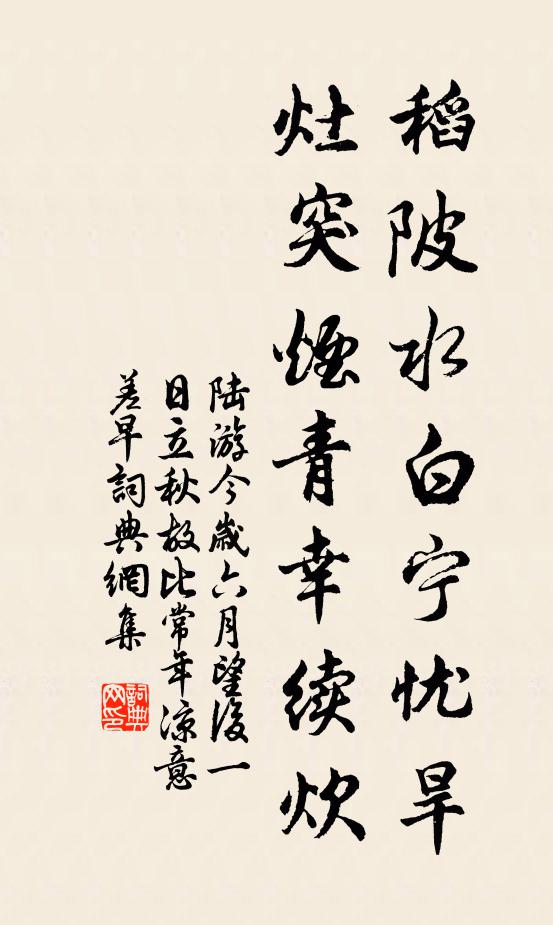 稻陂水白宁忧旱
灶突煙青幸续炊
陆游今歲六月望後一
日立秋故比常年凉意
差早詞典網集
詞典
网印